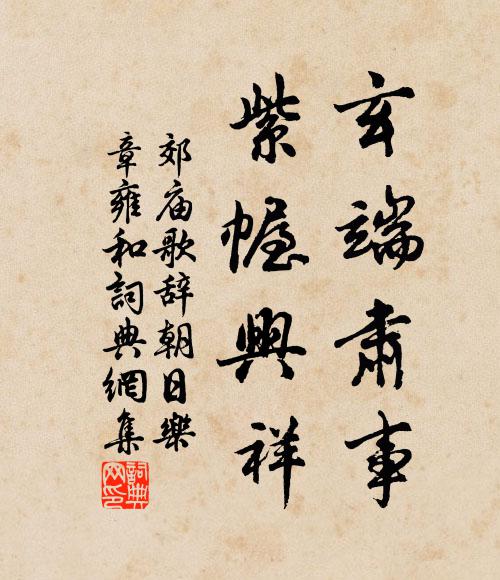 玄端肅事
紫幄興祥
郊庙歌辞朝日樂
章雍和詞典網集
詞典
网印